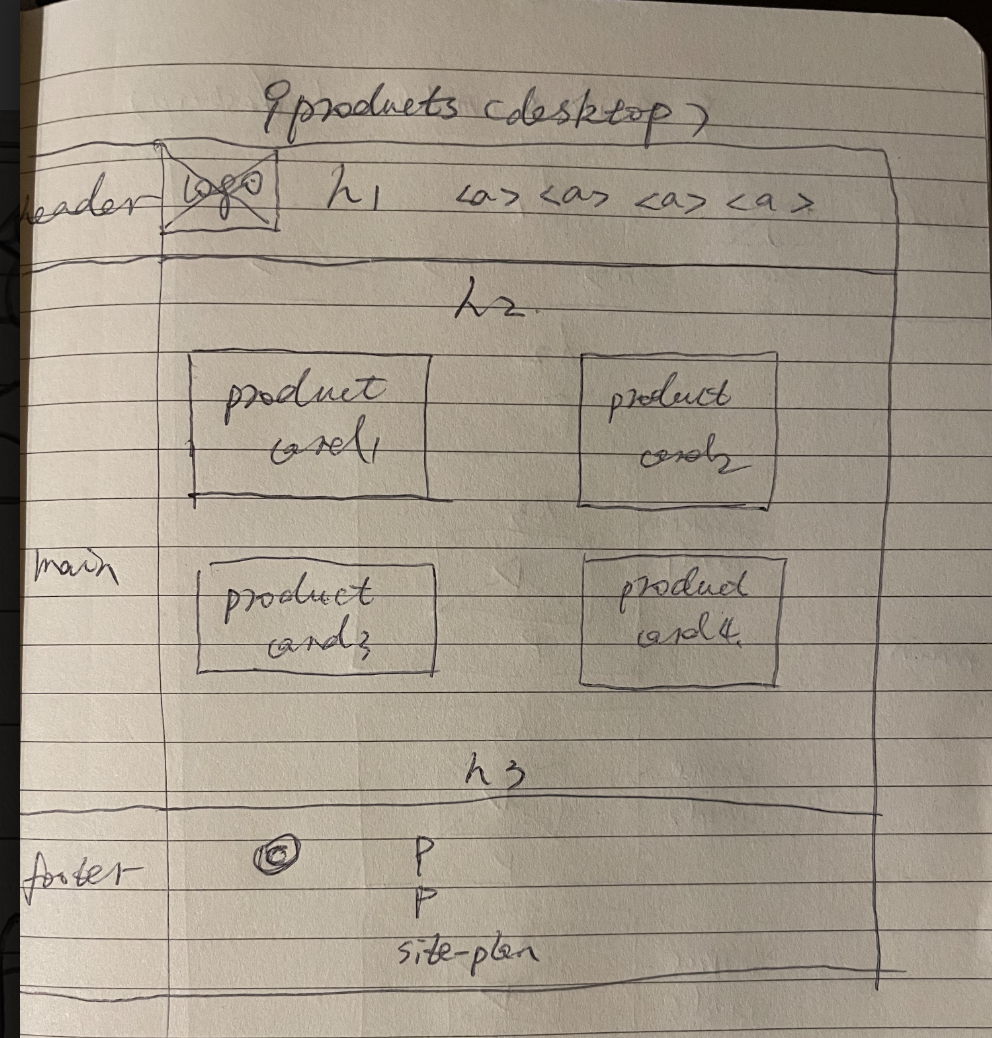 9products (desktop)
header logo h1 <a> <a> <a> <a>
h2
product card1
product card2
main
product card3
product card4
h3
footer © P
P
site-plan